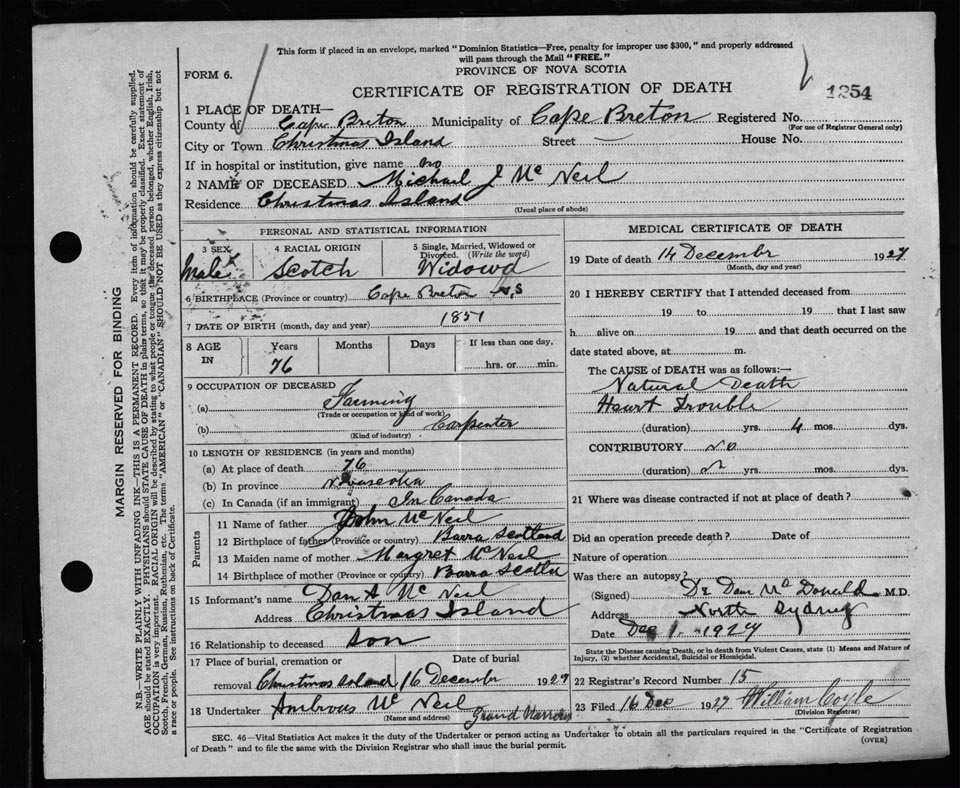 This form if placed in an envelope, marked "Dominion Statistics—Free, penalty for improper use $300," and properly addressed
will pass through the Mail "FREE."
FORM 6.
PROVINCE OF NOVA SCOTIA
CERTIFICATE OF REGISTRATION OF DEATH
1354
1 PLACE OF DEATH—
County of Cape Breton Municipality of Cape Breton Registered No.
(For use of Registrar General only)
City or Town Christmas Island Street — House No.
If in hospital or institution, give name no
2 NAME OF DECEASED Michael J Mc Neil
Residence Christmas Island
(Usual place of abode)
PERSONAL AND STATISTICAL INFORMATION
3 SEX 4 RACIAL ORIGIN 5 Single, Married, Widowed or Divorced. (Write the word)
Male Scotch Widowd
6 BIRTHPLACE (Province or country) Cape Breton
7 DATE OF BIRTH (month, day and year) 1851
8 AGE IN Years Months Days If less than one day,
76 hrs. or min.
9 OCCUPATION OF DECEASED
(a) Farming
(Trade or occupation or kind of work)
(b) Carpenter
(Kind of industry)
10 LENGTH OF RESIDENCE (in years and months)
(a) At place of death 76
(b) In province Novascotia
(c) In Canada (if an immigrant) In Canada
Parents
11 Name of father John Mc Neil
12 Birthplace of father (Province or country) Barra Scotland
13 Maiden name of mother Margret Mc Neil
14 Birthplace of mother (Province or country) Barra
15 Informant's name Dan A Mc Neil
Address Christmas Island
16 Relationship to deceased son
17 Place of burial, cremation or Date of burial
removal Christmas Island 16 December 1927
18 Undertaker Ambrous Mc Neil Grand Narrows
(Name and address)
MEDICAL CERTIFICATE OF DEATH
19 Date of death 14 December 1927
(Month, day and year)
20 I HEREBY CERTIFY that I attended deceased from
19 to 19 that I last saw
h alive on 19 and that death occurred on the
date stated above, at m.
The CAUSE of DEATH was as follows:—
Natural Death
Heart Trouble
(duration) yrs. 4 mos. dys.
CONTRIBUTORY no
(duration) yrs. mos. dys.
21 Where was disease contracted if not at place of death?
Did an operation precede death? Date of
Nature of operation
Was there an autopsy?
(Signed) Dr Dan Mc Donald M.D.
Address North Sydney
Date Dec 1927
State the Disease causing Death, or in death from Violent Causes, state (1) Means and Nature of
Injury, (2) whether Accidental, Suicidal or Homicidal.
22 Registrar's Record Number 15
23 Filed 16 Dec 1927 William Coyle
(Division Registrar)
SEC. 46—Vital Statistics Act makes it the duty of the Undertaker or person acting as Undertaker to obtain all the particulars required in the "Certificate of Registration
of Death" and to file the same with the Division Registrar who shall issue the burial permit.
(OVER)
MARGIN RESERVED FOR BINDING
N.B.—WRITE PLAINLY WITH UNFADING INK—THIS IS A PERMANENT RECORD. Every item of information should be carefully supplied.
AGE should be stated EXACTLY. PHYSICIANS should STATE CAUSE OF DEATH in plain terms, so that it may be properly classified. Exact statement of
OCCUPATION is very important. RACIAL ORIGIN will be described by stating to what people or tongue the deceased person belonged, whether English, Irish,
Scotch, French, German, Russian, Ruthenian, etc. The terms "AMERICAN" or "CANADIAN" SHOULD NOT BE USED as they express citizenship but not
a race or people. See instructions on back of Certificate.